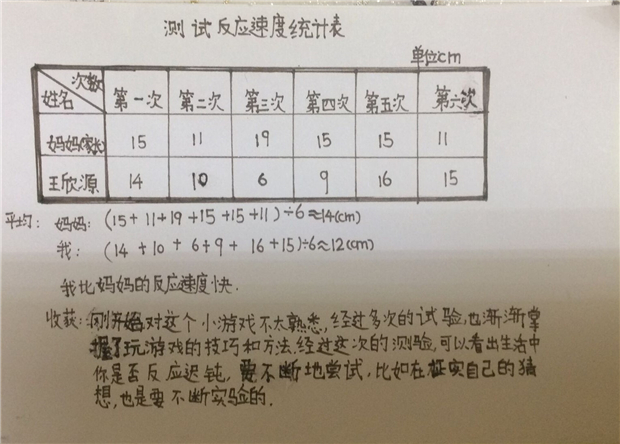 测试反应速度统计表
单位cm
次数
姓名 第一次 第二次 第三次 第四次 第五次 第六次
妈妈(家长) 15 11 19 15 15 11
王欣源 14 10 6 9 16 15
平均: 妈妈: (15+11+19+15+15+11)÷6≈14(cm)
我: (14+10+6+9+16+15)÷6≈12(cm)
我比妈妈的反应速度快.
收获: 刚开始对这个小游戏不太熟悉,经过多次的试验,也渐渐掌
握了玩游戏的技巧和方法.经过这次的测验,可以看出生活中
你是否反应迟钝,要不断地尝试,比如在证实自己的猜
想,也是要不断实验的.